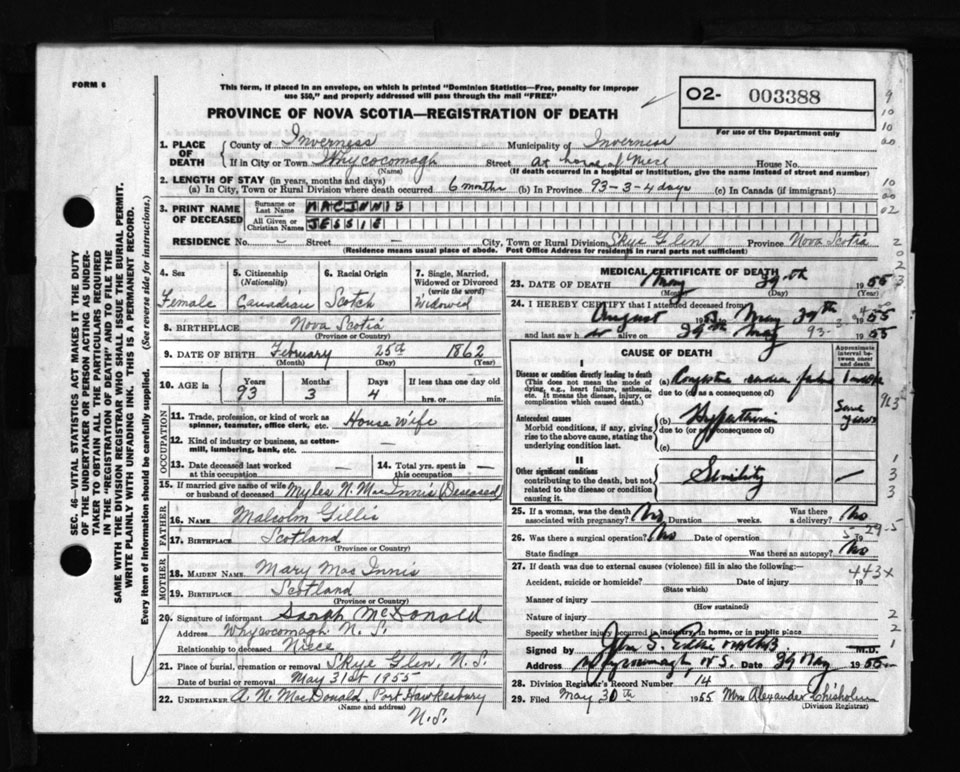 FORM 6
This form, if placed in an envelope, on which is printed "Dominion Statistics—Free, penalty for improper
use $50," and properly addressed will pass through the mail "FREE"
PROVINCE OF NOVA SCOTIA—REGISTRATION OF DEATH
O2- 003388
For use of the Department only
1. PLACE OF DEATH
County of Inverness Municipality of Inverness
If in City or Town Whycocomagh Street at home of Niece House No.
(Name) (If death occurred in a hospital or institution, give the name instead of street and number)
2. LENGTH OF STAY (in years, months and days)
(a) In City, Town or Rural Division where death occurred 6 months (b) In Province 93-3-4 days (c) In Canada (if immigrant)
3. PRINT NAME OF DECEASED
Surname or Last Name MACINNIS
All Given or Christian Names JESSIE
RESIDENCE No. - Street - City, Town or Rural Division Skye Glen Province Nova Scotia
(Residence means usual place of abode. Post Office Address for residents in rural parts not sufficient)
4. Sex Female
5. Citizenship (Nationality) Canadian
6. Racial Origin Scotch
7. Single, Married, Widowed or Divorced (write the word) Widowed
8. BIRTHPLACE Nova Scotia
(Province or Country)
9. DATE OF BIRTH February 25th 1862
(Month) (Day) (Year)
10. AGE in Years 93 Months 3 Days 4 If less than one day old
hrs. or min.
OCCUPATION
11. Trade, profession, or kind of work as spinner, teamster, office clerk, etc. House Wife
12. Kind of industry or business, as cotton-mill, lumbering, bank, etc. —
13. Date deceased last worked at this occupation —
14. Total yrs. spent in this occupation —
15. If married give name of wife or husband of deceased Myles N. MacInnis (Deceased)
FATHER
16. NAME Malcolm Gillis
17. BIRTHPLACE Scotland
(Province or Country)
MOTHER
18. MAIDEN NAME Mary MacInnis
19. BIRTHPLACE Scotland
(Province or Country)
20. Signature of informant Sarah McDonald
Address Whycocomagh N.S.
Relationship to deceased Niece
21. Place of burial, cremation or removal Skye Glen, N.S.
Date of burial or removal May 31st 1955
22. UNDERTAKER A. N. MacDonald, Port Hawkesbury
(Name and address)
N.S.
MEDICAL CERTIFICATE OF DEATH
23. DATE OF DEATH May 29th 1955
(Month) (Day) (Year)
24. I HEREBY CERTIFY that I attended deceased from
August May 29th 1955
and last saw h alive on 29th May 1955
CAUSE OF DEATH
Approximate interval between onset and death
I
Disease or condition directly leading to death
(This does not mean the mode of dying, e.g., heart failure, asthenia, etc. It means the disease, injury, or complication which caused death.)
(a) Congestive cardiac failure
due to (or as a consequence of)
Antecedent causes
Morbid conditions, if any, giving rise to the above cause, stating the underlying condition last.
(b) Hypertension Some years
due to (or as consequence of)
(c)
II
Other significant conditions
contributing to the death, but not related to the disease or condition causing it.
Senility
25. If a woman, was the death associated with pregnancy? No Duration weeks. Was there a delivery? No
26. Was there a surgical operation? No Date of operation 19
State findings Was there an autopsy? No
27. If death was due to external causes (violence) fill in also the following:—
Accident, suicide or homicide? Date of injury 19
(State which)
Manner of injury
(How sustained)
Nature of injury
Specify whether injury occurred in industry, in home, or in public place
Signed by M.D.
Address Whycocomagh N.S. Date 29 May 1955
28. Division Registrar's Record Number 14
29. Filed May 30th 1955 Mrs Alexander Chisholm
(Division Registrar)
443x
SEC. 46—VITAL STATISTICS ACT MAKES IT THE DUTY
OF THE UNDERTAKER OR PERSON ACTING AS UNDER-
TAKER TO OBTAIN ALL THE PARTICULARS REQUIRED
IN THE "REGISTRATION OF DEATH" AND TO FILE THE
SAME WITH THE DIVISION REGISTRAR WHO SHALL ISSUE THE BURIAL PERMIT.
WRITE PLAINLY WITH UNFADING INK. THIS IS A PERMANENT RECORD.
Every item of information should be carefully supplied. (See reverse side for instructions.)